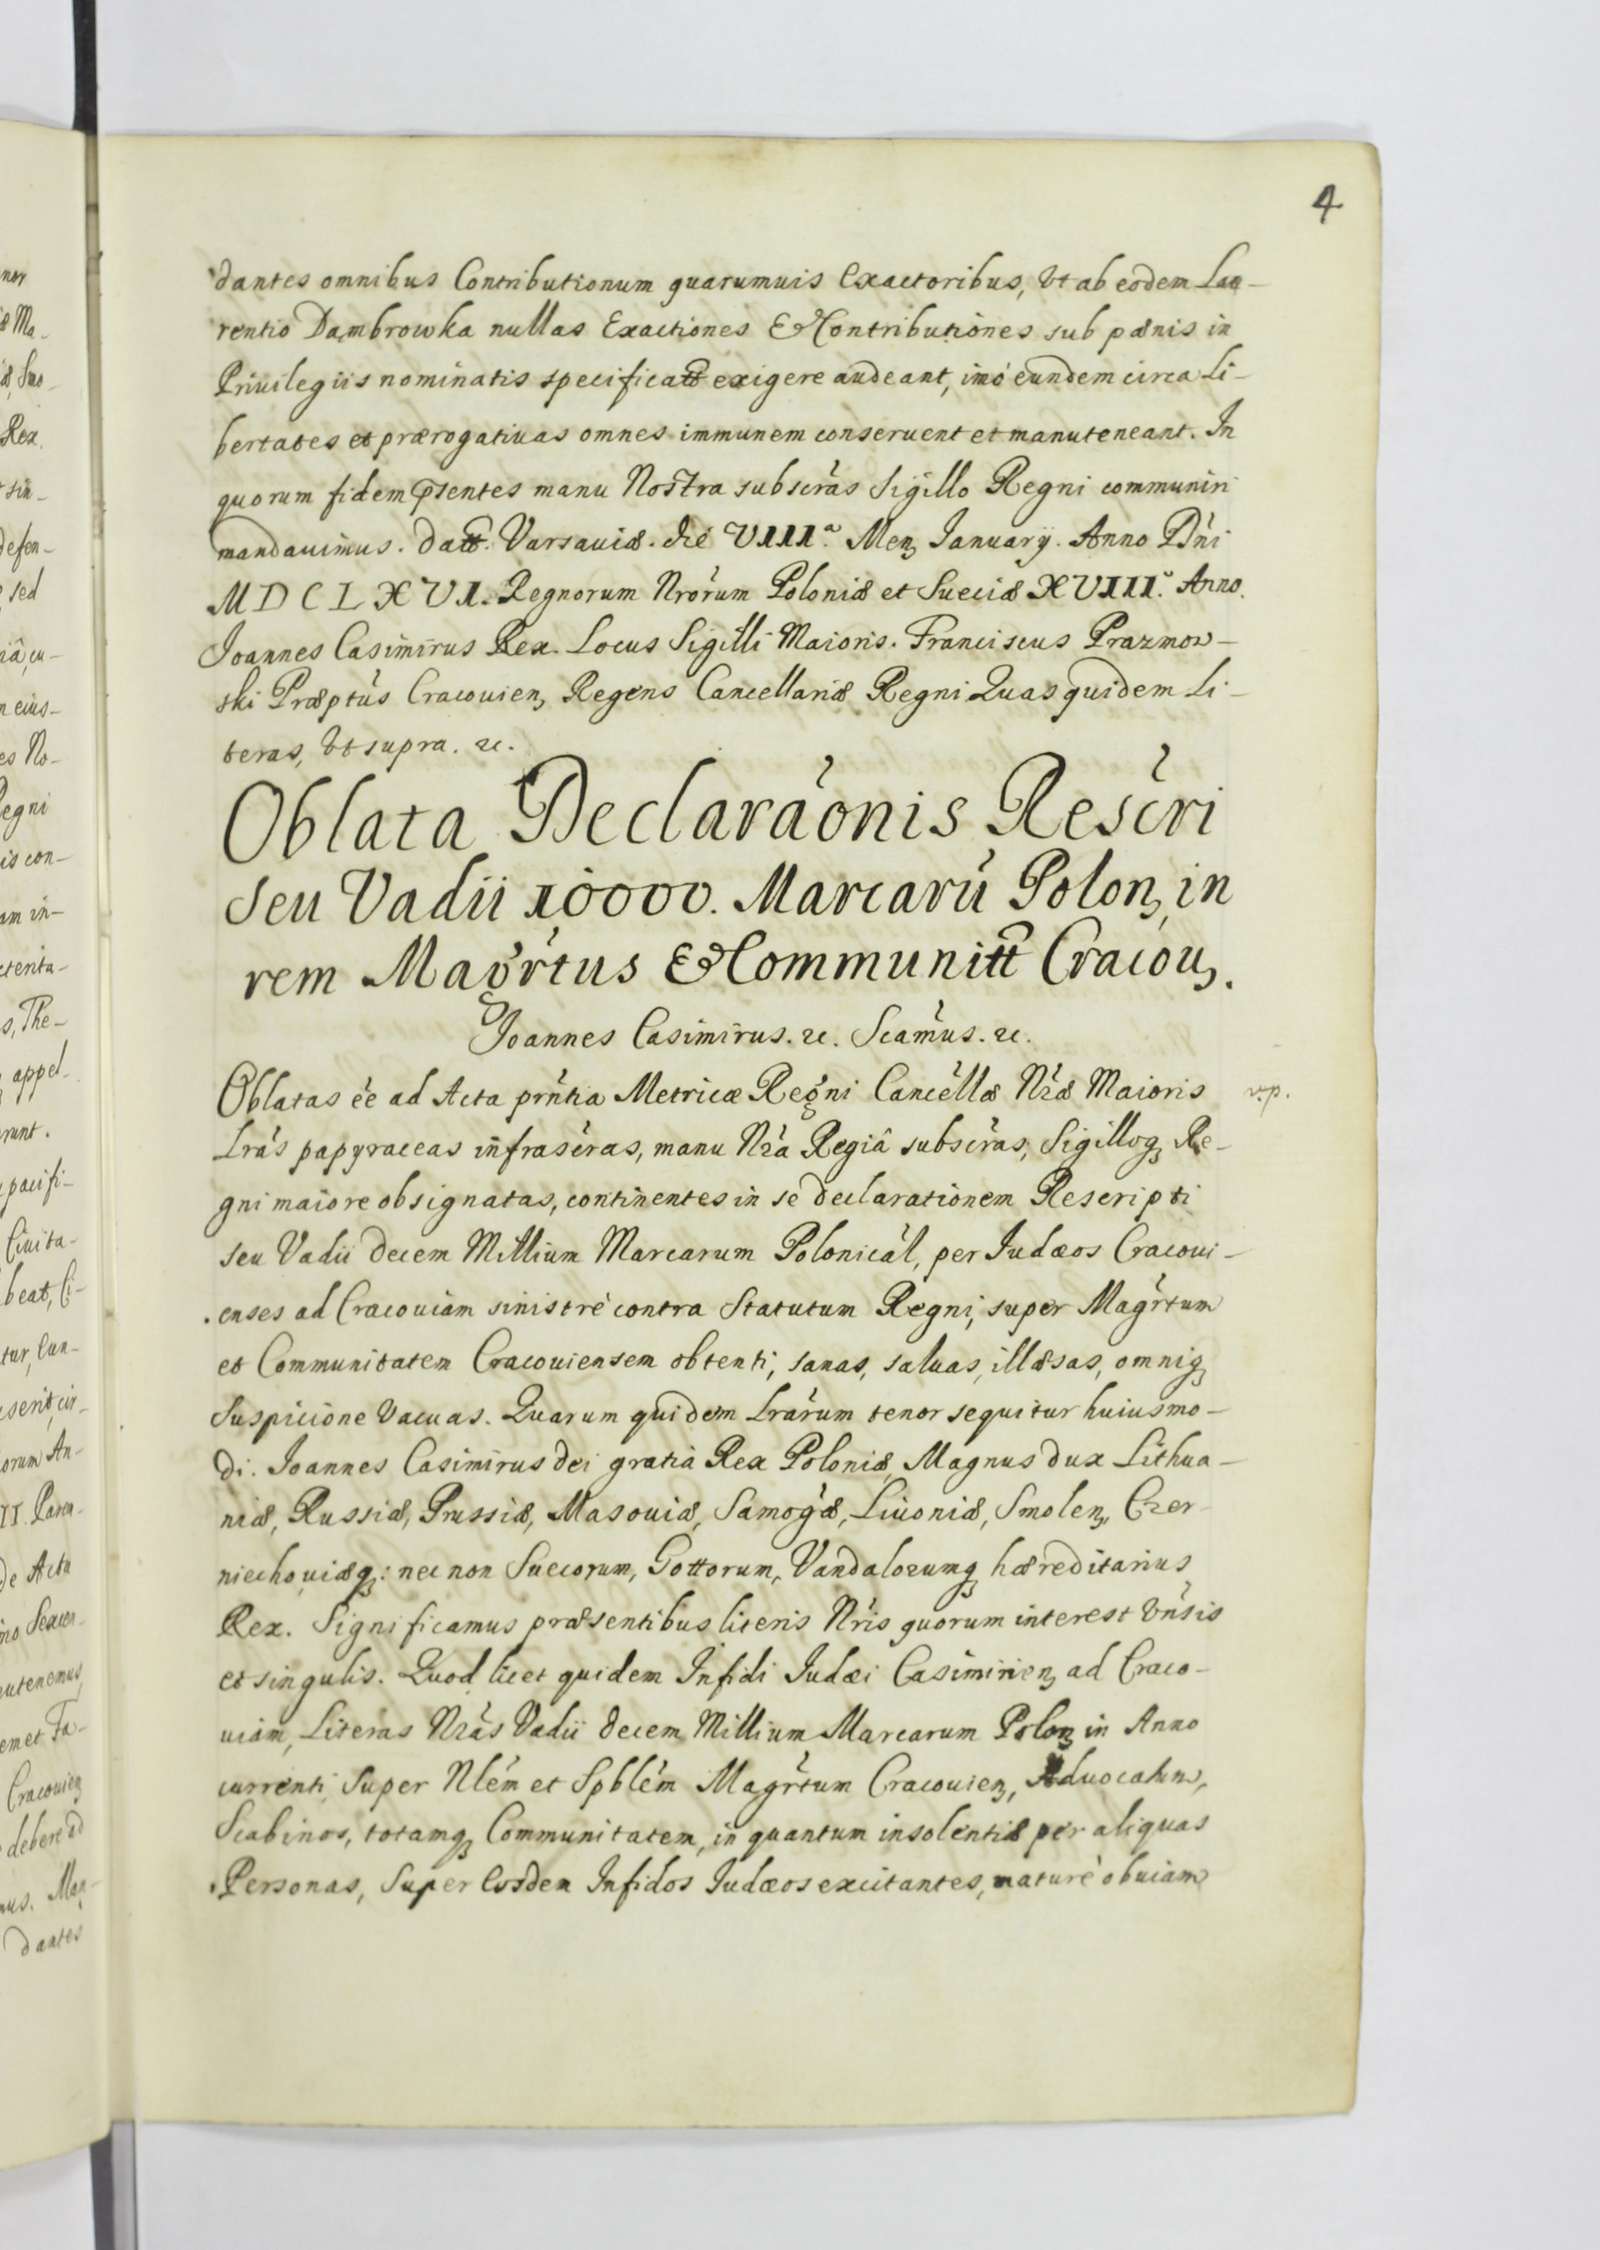 4
dantes omnibus Contributionum quarumuis Exactoribus, Vt ab eodem Lau-
rentio Dambrowka nullas Exactiones & Contributiones sub pænis in
Priuilegiis nominatis specificatt exigere audeant, imó eundem circa Li-
bertates et prærogatiuas omnes immunem conseruent et manuteneant. In
quorum fidem pñsentes manu Nostra subscr̃as Sigillo Regni communiri
mandauimus. Datt. Varsauiæ. die VIII.ª Men, January. Anno Dñi
MDCLXVI. Regnorum Nrõrum Poloniæ et Sueciæ XVIII.º Anno.
Joannes Casimirus Rex. Locus Sigilli Maioris. Franciscus Prazmow-
ski Præptũs Cracouien, Regens Cancellariæ Regni Quas quidem Li-
teras, Vt supra. &c.
Oblata Declaraõnis Rescr̃i
seu Vadii 10000. Marcarũ Polon, in
rem Magr̃tus & Communitt Cracou,.
Joannes Casimirus. &c. Scam̃us. &c.
Oblatas ẽe ad Acta prñtia Metricæ Regñi Cancẽllæ Nr̃æ Maioris
v.p.
Lrãs papyraceas infrascr̃as, manu Nr̃a Regiâ subscr̃as, Sigilloq3 Re-
gni maiore obsignatas, continentes in se declarationem Rescripti
seu Vadii decem Millium Marcarum Polonicãl, per Iudæos Cracoui-
enses ad Cracouiam sinistré contra Statutum Regni, super Magr̃tum
et Communitatem Cracouiensem obtenti, sanas, saluas, illæsas, omniq3
Suspicione Vacuas. Quarum quidem Lrãrum tenor sequitur huiusmo-
di. Joannes Casimirus Dei gratia Rex Poloniæ, Magnus dux Lithua-
niæ, Russiæ, Prussiæ, Masouiæ, Samog̃æ, Liuoniæ, Smolen, Czer-
niechouiæq3: nec non Suecorum, Gottorum, Vandalorumq3 hæreditarius
Rex. Significamus præsentibus literis Nr̃is quorum interest Vñsis
et singulis. Quod licet quidem Infidi Iudæi Casimirien, ad Craco-
uiam, Literas Nr̃as Vadii decem Millium Marcarum Polon, in Anno
currenti, Super Nlẽm et Spblẽm Magr̃tum Cracouien, Aduocatum,
Scabinos, totamq3 Communitatem, in quantum insolentiæ per aliquas
Personas, Super Eosdem Infidos Iudæos excitantes, maturé obuiam